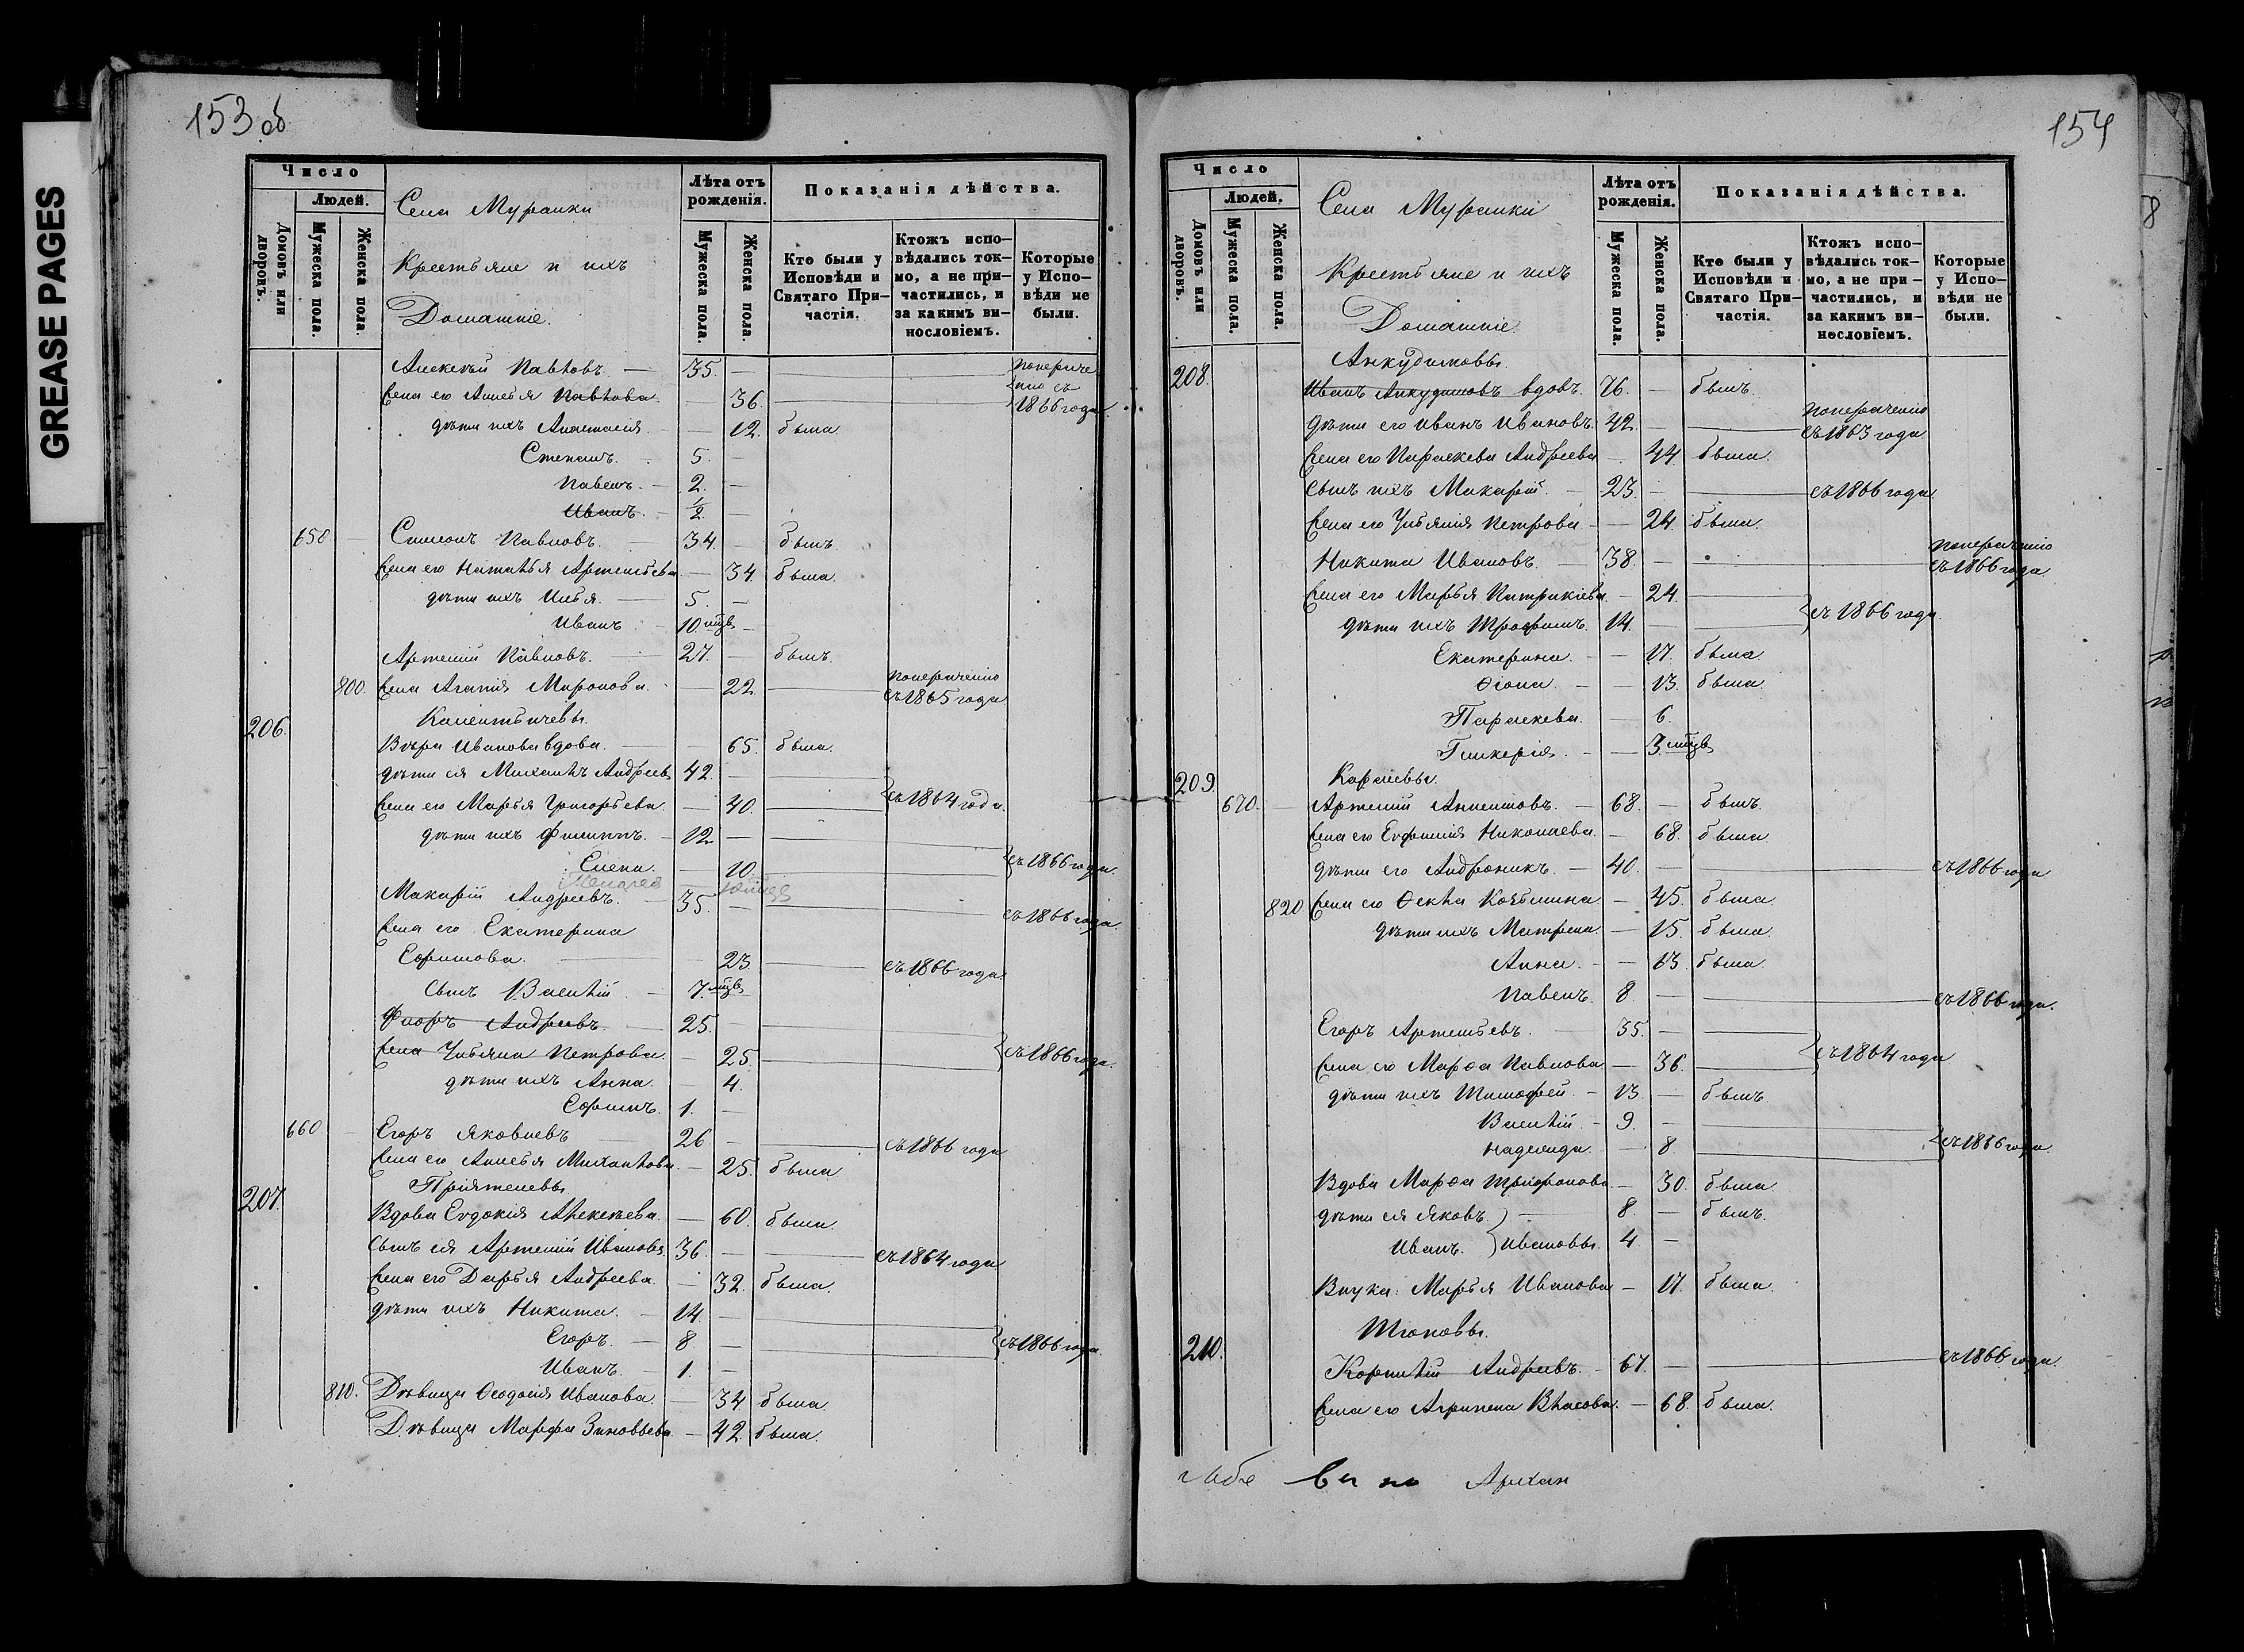 GREASE PAGES
153 об
Число
Людей.
Домовъ или дворовъ.
Мужеска пола.
Женска пола.
Села Муранки
Крестьяне и ихъ
Домашніе.
Лѣта отъ рожденія.
Мужеска пола.
Женска пола.
Показанія дѣйства.
Кто были у Исповѣди и Святаго При-частія.
Ктожъ испо-вѣдались ток-мо, а не при-частились, и за какимъ ви-нословіемъ.
Которые у Испо-вѣди не были.
Алексѣй Павловъ. 35.
Жена его Анисья Павлова 36. 1866 года
дѣти ихъ Анастасія 12. была
Степанъ. 5.
Павелъ. 2.
Иванъ. 1/2
658 Симонъ Павловъ. 34. былъ.
Жена его Наталья Артемьева 34. была.
дѣти ихъ Илья 5.
Иванъ 10. мцв
Артемій Павловъ. 27. былъ.
800. Жена Агапія Миронова. 22. съ 1865 года
206. Калентьичевы.
Вѣра Иванова вдова. 65. была.
дѣти ея Михаилъ Андреев 42.
Жена его Марья Григорьева 40. съ 1864 года.
дѣти ихъ Филиппъ. 12
Елена. 10. съ 1866 года.
Макарій Андреевъ. 35. съ 1866 года.
Жена его Екатерина
Ефимова. 23. съ 1866 года
сынъ Василій 7. мцв
Флоръ Андреевъ. 25.
Жена Ульяна Петрова. 25. съ 1866 года.
дѣти ихъ Анна. 4.
Ефимъ. 1.
660 Егоръ Яковлевъ 26 съ 1866 года
Жена его Анисья Михайлова. 25. была
207. Пріятелевы
Вдова Евдокія Алексѣева. 60. была
сынъ ея Артемій Ивановъ 36. съ 1864 года
Жена его Дарья Андреева. 32. была.
дѣти ихъ Никита. 14.
Егоръ. 8. съ 1866 года.
Иванъ. 1.
810. Дѣвица Ѳеодосія Иванова 34 была.
Дѣвица Марфа Зиновьева 42. была.
154
Число
Людей.
Домовъ или дворовъ.
Мужеска пола.
Женска пола.
Села Муранки
Крестьяне и ихъ
Домашніе.
Лѣта отъ рожденія.
Мужеска пола.
Женска пола.
Показанія дѣйства.
Кто были у Исповѣди и Святаго При-частія.
Ктожъ испо-вѣдались ток-мо, а не при-частились, и за какимъ ви-нословіемъ.
Которые у Испо-вѣди не были.
208. Анкудимовы.
Иванъ Анкудимовъ вдовъ. 76. былъ.
дѣти его Иванъ Ивановъ. 42. съ 1863 года
Жена его Параскева Андреева 44. была.
сынъ ихъ Макарій. 23. съ 1866 года.
Жена его Ульянія Петрова 24. была.
Никита Ивановъ. 38. съ 1866 года
Жена его Марья Патрикіева. 24.
дѣти ихъ Трофимъ. 14. съ 1866 года.
Екатерина. 17. была.
Ѳіона. 13. была.
Параскева. 6.
Гликерія. 3. мцв
209. Каралевы.
670. Артемій 68. былъ.
Жена его Евфимія Николаева. 68. была.
дѣти его Андроникъ. 40. съ 1866 года
820 Жена его Ѳекла Козьмина. 45. была
дѣти ихъ Матрена. 15. была.
Анна. 13. была.
Павелъ. 8. съ 1866 года.
Егоръ Артемьевъ. 35.
Жена его Марѳа Павлова 36. съ 1864 года
дѣти ихъ Тимофей. 13. былъ.
Василій. 9.
Надежда. 8. съ 1866 года.
Вдова Марѳа Трифонова. 30. была.
дѣти ея Яковъ. 8. былъ.
Иванъ. Ивановы. 4.
Внука: Марья Иванова 17. была.
210. Шгоновы.
Корнилій Андреевъ. 67. съ 1866 года.
Жена его Агрипена Власова. 68. была.